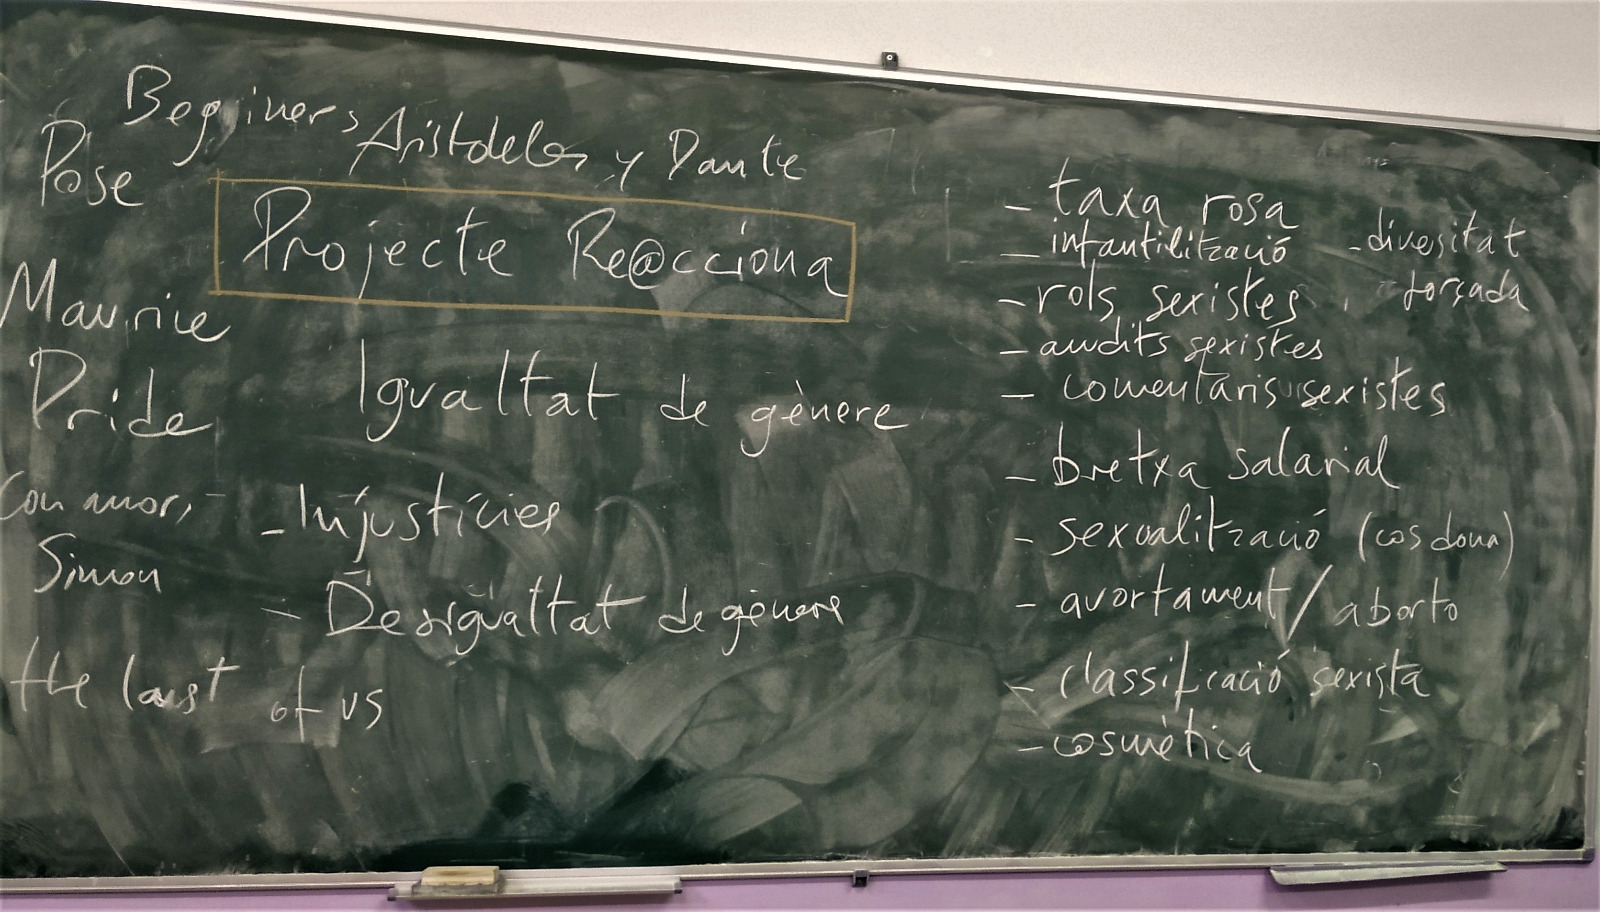 Begginers
Aristoteles y Dante
Pose
Projecte Re@cciona
Maurice
Pride
Igualtat de gènere
Con amor,
Simon
- Injustícies
- Desigualtat de gènere
the last of us
- taxa rosa
- infantilització
- rols sexistes
- audits sexistes
- comentaris sexistes
- bretxa salarial
- sexualització (cos dona)
- avortament / aborto
- classificació sexista
- cosmètica
- diversitat
forçada